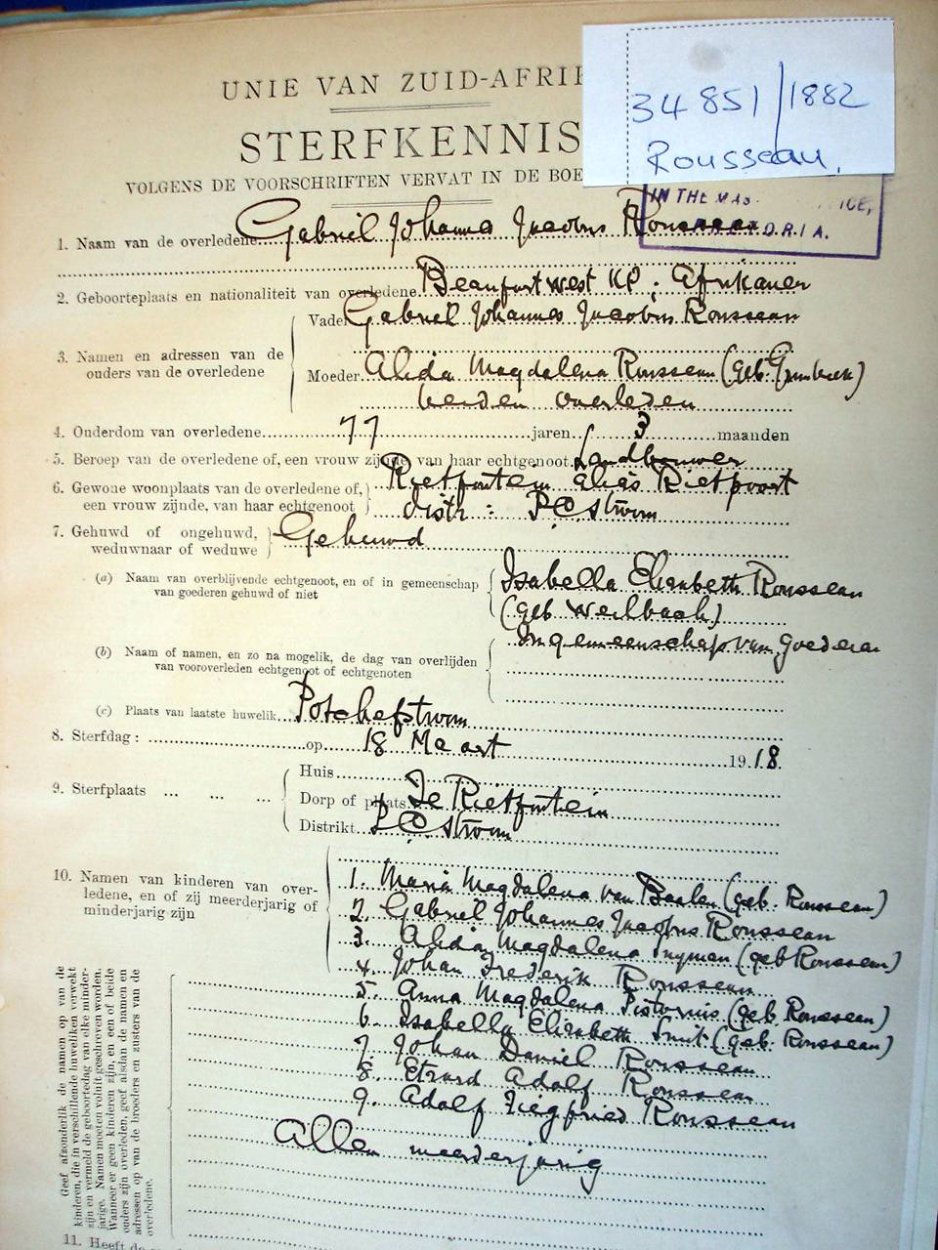 34851/1882
Rousseau.
UNIE VAN ZUID-AFRI
STERFKENNIS
VOLGENS DE VOORSCHRIFTEN VERVAT IN DE BOE
IN THE MAS ICE,
ORIA.
1. Naam van de overledene Gabriel Johannes Jacobus Rousseau
2. Geboorteplaats en nationaliteit van overledene Beaufort West KP; Afrikaner
3. Namen en adressen van de ouders van de overledene
Vader Gabriel Johannes Jacobus Rousseau
Moeder Alida Magdalena Rousseau (geb. Grunbeek)
beiden overleden
4. Ouderdom van overledene 77 jaren 3 maanden
5. Beroep van de overledene of, een vrouw zijnde van haar echtgenoot Landbouwer
6. Gewone woonplaats van de overledene of, Rietfontein Elias Rietpoort
een vrouw zijnde, van haar echtgenoot distr: P.C. Stroom
7. Gehuwd of ongehuwd, weduwnaar of weduwe Gehuwd
(a) Naam van overblijvende echtgenoot, en of in gemeenschap Isabella Elizabeth Rousseau
van goederen gehuwd of niet (geb. Weilbach)
In gemeenschap van goederen
(b) Naam of namen, en zo na mogelik, de dag van overlijden
van vooroverleden echtgenoot of echtgenoten
(c) Plaats van laatste huwelik Potchefstroom
8. Sterfdag: op 18 Maart 1918.
9. Sterfplaats ... ... ...
Huis
Dorp of plaats Te Rietfontein
Distrikt P.C. Stroom
10. Namen van kinderen van over-
ledene, en of zij meerderjarig of
minderjarig zijn
1. Maria Magdalena van Baalen (geb. Rousseau)
2. Gabriel Johannes Jacobus Rousseau
3. Alida Magdalena Snyman (geb Rousseau)
4. Johan Frederik Rousseau
5. Anna Magdalena Pistorius (geb. Rousseau)
6. Isabella Elizabeth Smit (geb. Rousseau)
7. Johan Daniel Rousseau
8. Adolf Rousseau
9. Adolf Siegfried Rousseau
Allen meerderjarig
Geef afzonderlik de namen op van de
kinderen, die in verschillende huweliken verwekt
zijn en vermeld de geboortedag van elke minder-
jarige. Namen moeten voluit geschreven worden.
Wanneer er geen kinderen zijn, en een of beide
ouders zijn overleden, geef alsdan de namen en
adressen op van de broeders en zusters van de
overledene.
11. Heeft de